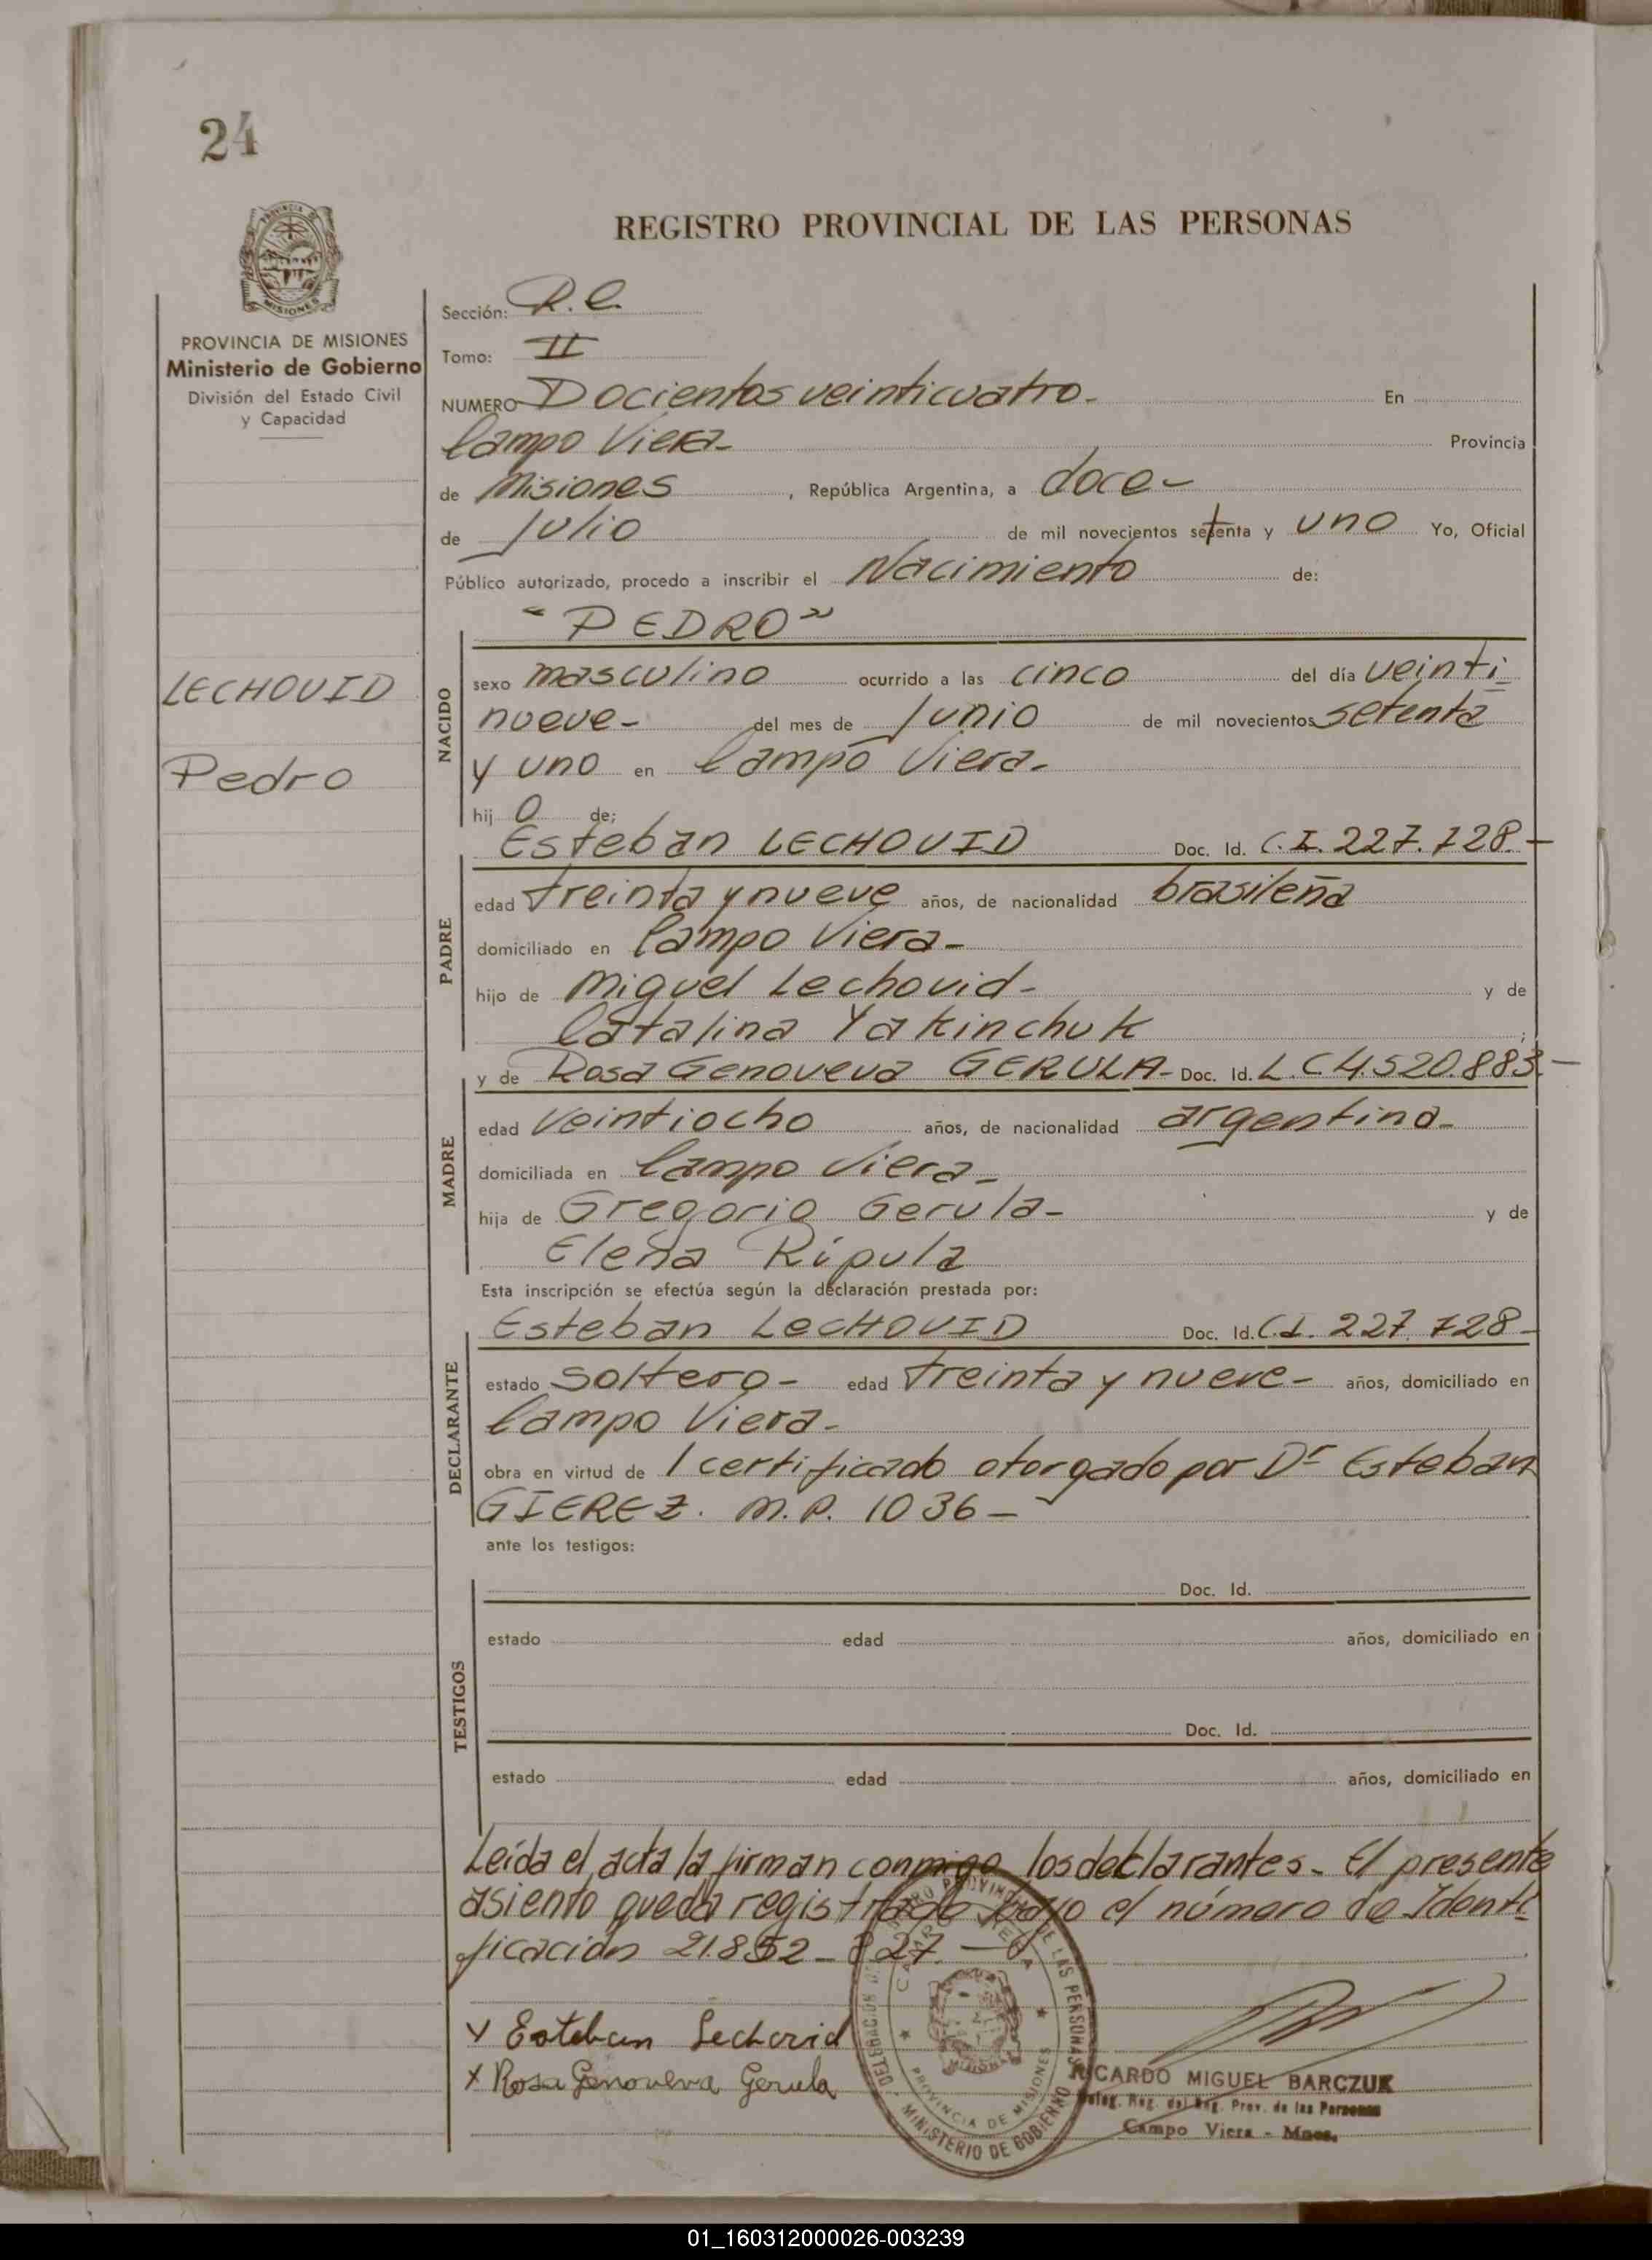 24
REGISTRO PROVINCIAL DE LAS PERSONAS
PROVINCIA DE MISIONES
Ministerio de Gobierno
División del Estado Civil
y Capacidad
LECHOVID
Pedro
Sección: R.C.
Tomo: II
NUMERO Docientos veinticuatro. En
Campo Viera- Provincia
de Misiones, República Argentina, a doce-
de Julio de mil novecientos setenta y uno Yo, Oficial
Público autorizado, procedo a inscribir el Nacimiento de:
"PEDRO"
NACIDO
sexo masculino ocurrido a las cinco del día veinti
nueve- del mes de Junio de mil novecientos setenta
y uno en Campo Viera.
hijo de:
Esteban LECHOVID Doc. Id. C.I. 227.728.-
PADRE
edad treinta y nueve años, de nacionalidad brasileña
domiciliado en Campo Viera-
hijo de Miguel Lechovid- y de
Catalina Yakinchuk ;
y de Rosa Genoveva GERULA- Doc. Id. L.C 4.520.883.-
MADRE
edad veintiocho años, de nacionalidad argentina-
domiciliada en Campo Viera-
hija de Gregorio Gerula- y de
Elena Ripula
Esta inscripción se efectúa según la declaración prestada por:
Esteban LECHOVID Doc. Id. C.I. 227.728-
DECLARANTE
estado soltero- edad treinta y nueve- años, domiciliado en
Campo Viera-
obra en virtud de 1 certificado otorgado por Dr Esteban
GIEREZ. M.P. 1036-
ante los testigos:
TESTIGOS
Doc. Id.
estado edad años, domiciliado en
Doc. Id.
estado edad años, domiciliado en
Leída el acta la firman conmigo los declarantes- El presente
asiento queda registrado bajo el número de Identi
ficación 21.852-827.-
x Esteban Lechovid
x Rosa Genoveva Gerula
DELEGACION DEL REGISTRO PROVINCIAL DE LAS PERSONAS
CAMPO VIERA
MISIONES
PROVINCIA DE MISIONES
MINISTERIO DE GOBIERNO
RICARDO MIGUEL BARCZUK
Deleg. Reg. del Reg. Prov. de las Personas
Campo Viera - Mnes.
01_160312000026-003239